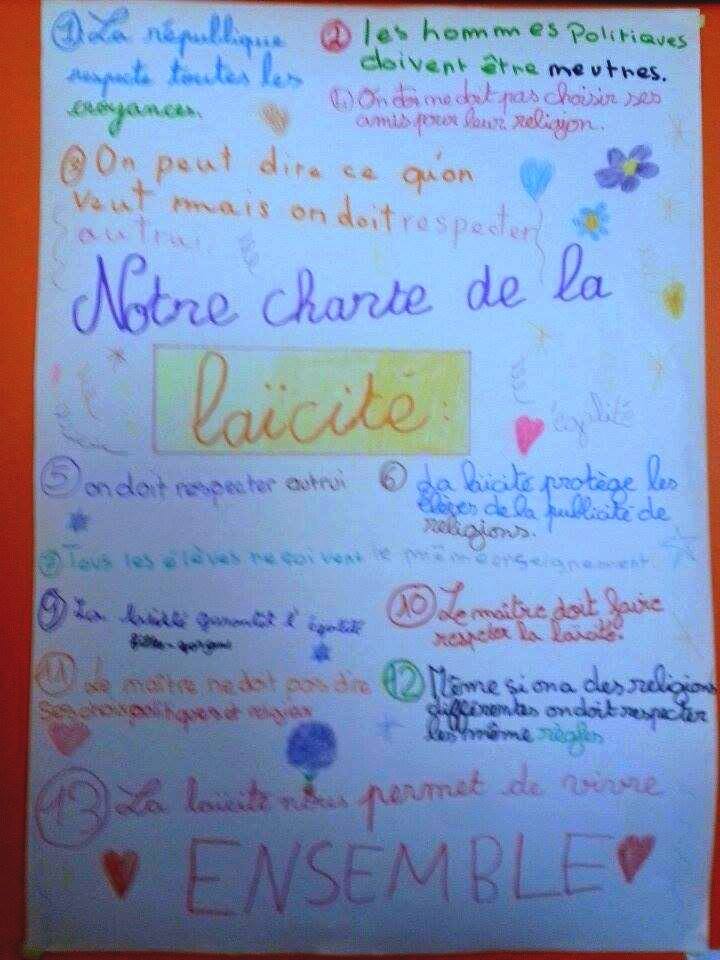 1 La républlique
respecte toutes les
croyances.
2 les hommes Politiques
doivent être meutres.
On doit pas choisir ses
amis pour leur religion.
3 On peut dire ce qu'on
veut mais on doit respecter
autrui.
Notre charte de la
laïcité :
égalité
5 on doit respecter autrui
6 La laïcité protège les
élèves de la publicité de
religions.
Tous les élèves reçoivent le même enseignement.
9 La laïcité garantit l'égalité
filles-garçons
10 Le maître doit faire
respecter la laïcité.
11 Le maître ne doit pas dire
ses choix politiques et religieux
12 Même si on a des religions
différentes on doit respecter
les même règles
13 La laïcité nous permet de vivre
ENSEMBLE